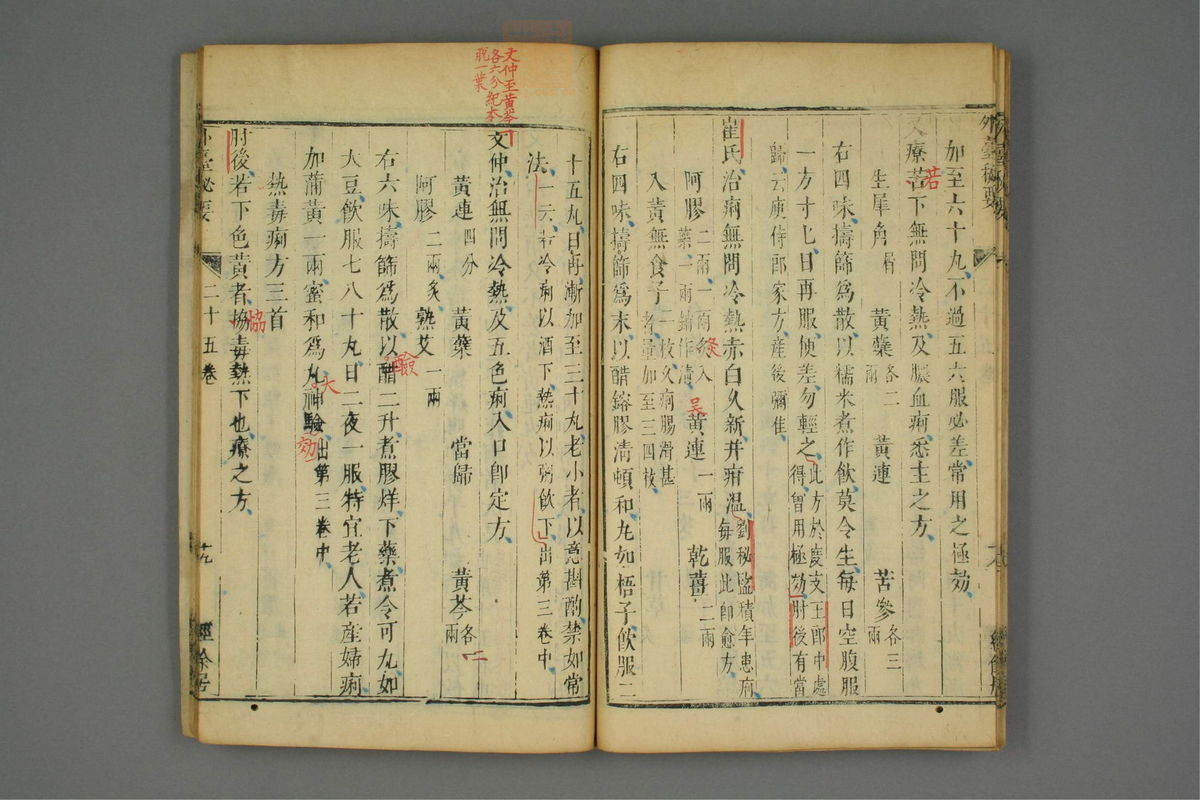 加至六十九不過五六服必差常用之極効
又療苦下無問冷熱及膿血痢悉主之方
若
生犀角屑 黃蘗各二兩 黃連 苦參各三兩
右四味擣篩為散以糯米煮作飲莫令生每日空腹服
一方寸匕日再服便差勿輕之此方於度支王郎中處
得曾用極効肘後有當
歸云庾侍郎家方產後彌佳
崔氏治痢無問冷熱赤白久新并疳溫劉秘監積年患痢
每服此即愈方
阿膠二兩一兩炙入
藥一兩鎔作清 黃連一兩 乾薑二兩
炙
吳
入黃無食子二枚久痢腸滑甚
者量加至三四枚
右四味擣篩為末以醋鎔膠清頓和丸如梧子飲服二
十五丸日再漸加至三十丸老小者以意斟酌禁如常
法一云若冷痢以酒下熱痢以粥飲下出第三卷中
文仲至黃芩
各六分紀本
脫一葉
文仲治無問冷熱及五色痢入口即定方
黃連四分 黃蘗 當歸 黃芩各二兩
阿膠二兩炙 熟艾一兩
右六味擣篩為散以醋二升煮膠烊下藥煮令可丸如
醶
大豆飲服七八十丸日二夜一服特宜老人若產婦痢
加蒲黃一兩蜜和為丸神驗出第三卷中
大
効
熱毒痢方三首
肘後若下色黃者協毒熱下也療之方
協
外臺秘要 二十五卷 十九 經餘居